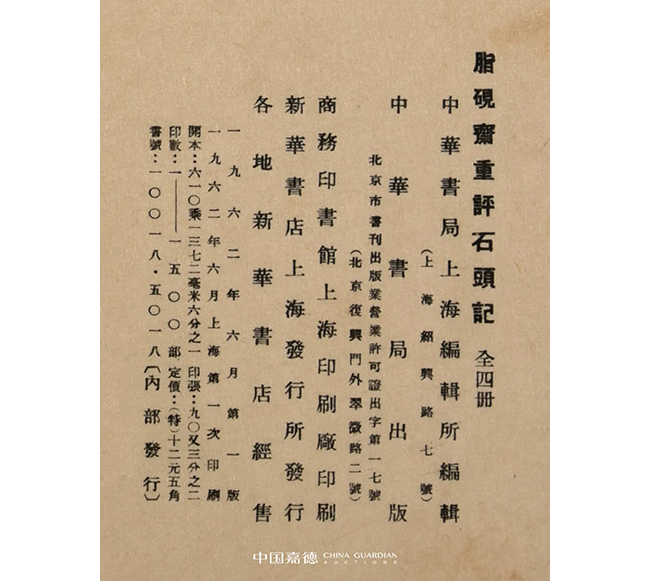 脂硯齋重評石頭記 全四冊
中華書局上海編輯所編輯
(上海紹興路七號)
中華書局出版
北京市書刊出版業營業許可證出字第一七號
(北京復興門外翠微路二號)
商務印書館上海印刷廠印刷
新華書店上海發行所發行
各地新華書店經售
一九六二年六月第一版
一九六二年六月上海第一次印刷
開本:六一〇乘一三七二毫米六分之一 印張:九〇又三分之二
印數:一——一五〇〇部 定價:(特)十二元五角
書號:一〇〇一八·五〇一八〔內部發行〕
中国嘉德 CHINA GUARDIAN
AUCTIONS